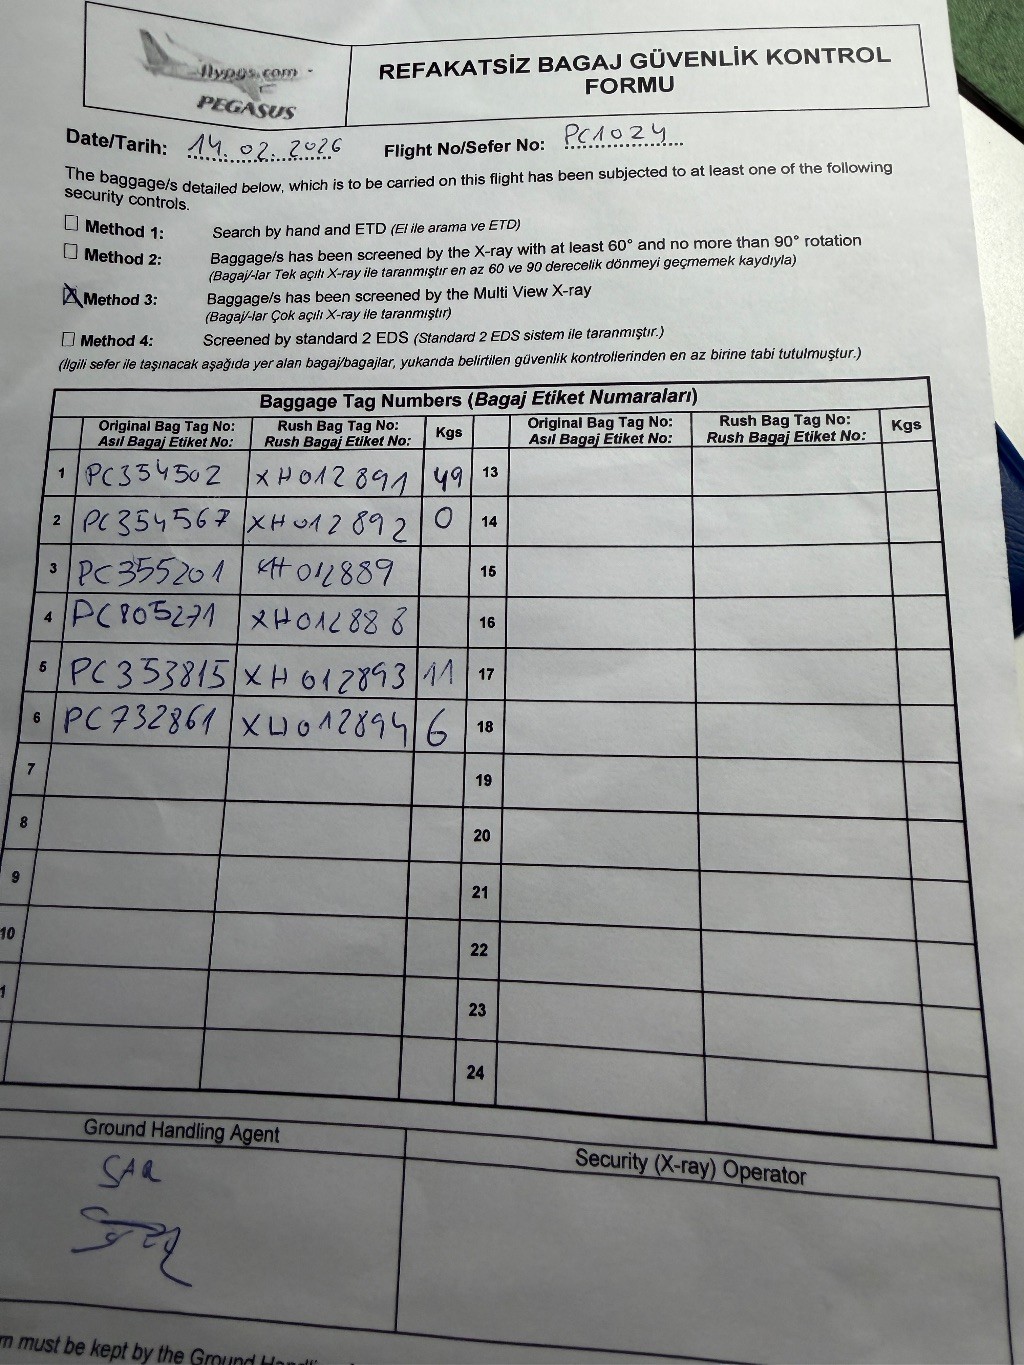 flypgs.com
PEGASUS
REFAKATSİZ BAGAJ GÜVENLİK KONTROL
FORMU
Date/Tarih: 14.02.2026 Flight No/Sefer No: PC1024
The baggage/s detailed below, which is to be carried on this flight has been subjected to at least one of the following
security controls.
Method 1: Search by hand and ETD (El ile arama ve ETD)
Method 2: Baggage/s has been screened by the X-ray with at least 60° and no more than 90° rotation
(Bagaj/-lar Tek açılı X-ray ile taranmıştır en az 60 ve 90 derecelik dönmeyi geçmemek kaydıyla)
Method 3: Baggage/s has been screened by the Multi View X-ray
(Bagaj/-lar Çok açılı X-ray ile taranmıştır)
Method 4: Screened by standard 2 EDS (Standard 2 EDS sistem ile taranmıştır.)
(İlgili sefer ile taşınacak aşağıda yer alan bagaj/bagajlar, yukarıda belirtilen güvenlik kontrollerinden en az birine tabi tutulmuştur.)
Baggage Tag Numbers (Bagaj Etiket Numaraları)
Original Bag Tag No: Rush Bag Tag No: Kgs Original Bag Tag No: Rush Bag Tag No: Kgs
Asıl Bagaj Etiket No: Rush Bagaj Etiket No: Asıl Bagaj Etiket No: Rush Bagaj Etiket No:
1 PC354502 XH012891 49 13
2 PC354567 XH012892 0 14
3 PC355201 XH012889 15
4 PC805271 XH012888 16
5 PC353815 XH012893 11 17
6 PC732861 XH012894 6 18
7 19
8 20
9 21
10 22
1 23
24
Ground Handling Agent Security (X-ray) Operator
m must be kept by the Ground